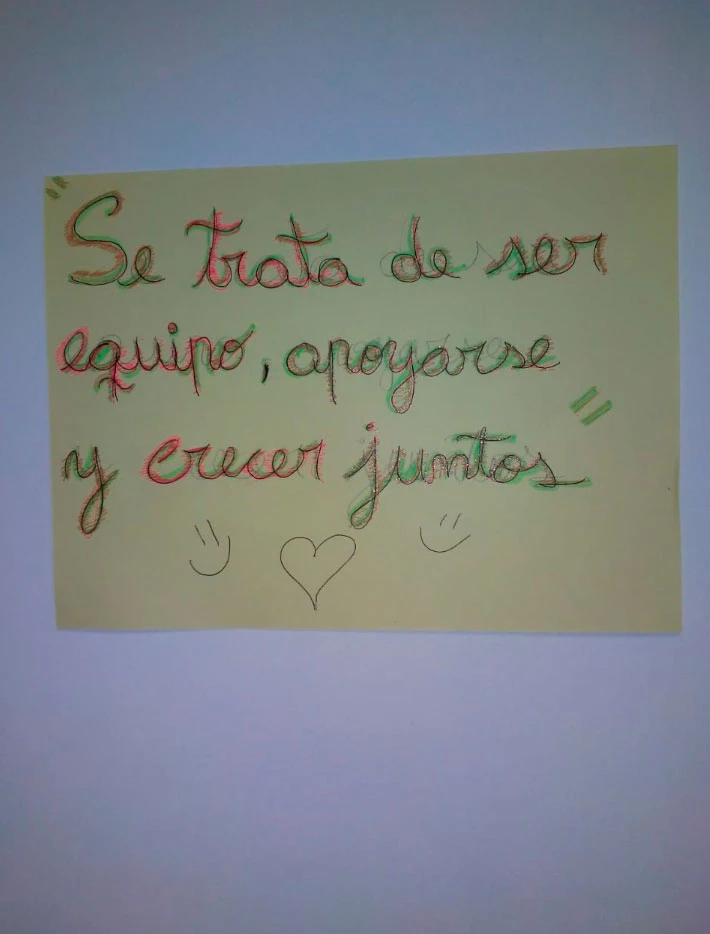 "Se trata de ser
equipo, apoyarse
y crecer juntos"